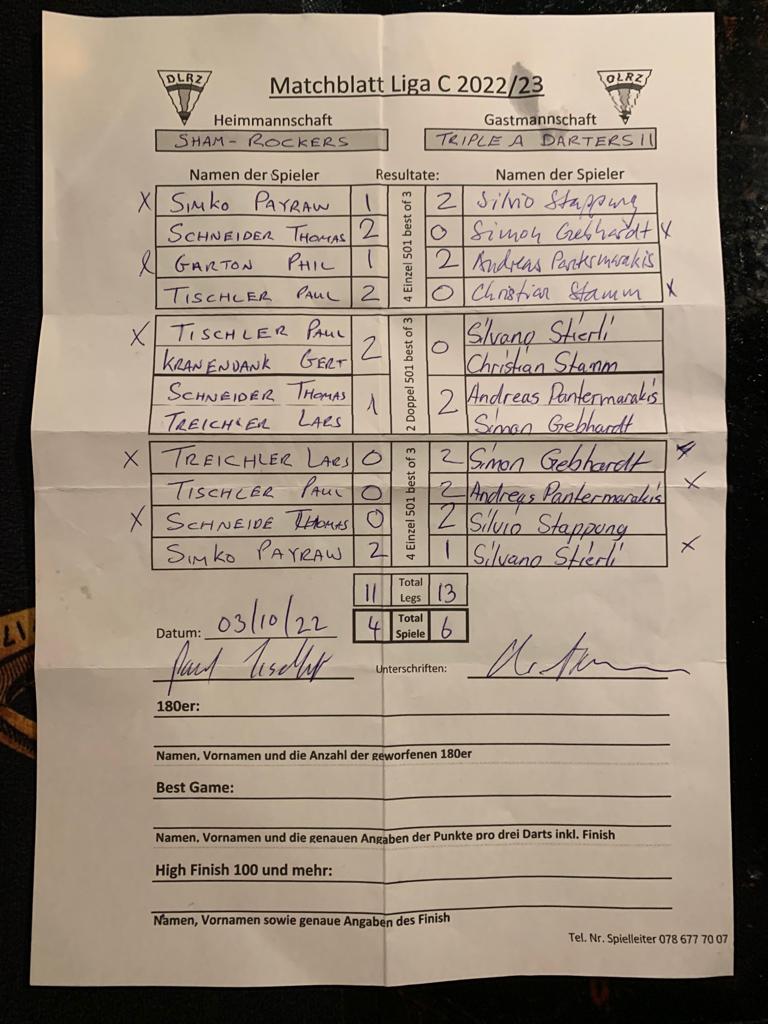 DLRZ Matchblatt Liga C 2022/23 DLRZ
Heimmannschaft Gastmannschaft
SHAM-ROCKERS TRIPLE A DARTERS II
Namen der Spieler Resultate: Namen der Spieler
X SIMKO PAYRAW 1 2 Silvio Stappung
SCHNEIDER THOMAS 2 0 Simon Gebhardt X
GARTON PHIL 1 2 Andreas Pantermarakis
TISCHLER PAUL 2 0 Christian Stamm X
4 Einzel 501 best of 3
X TISCHLER PAUL 2 0 Silvano Stierli
KRANENDANK GERT Christian Stamm
SCHNEIDER THOMAS 1 2 Andreas Pantermarakis
TREICHLER LARS Simon Gebhardt
2 Doppel 501 best of 3
X TREICHLER LARS 0 2 Simon Gebhardt
TISCHLER PAUL 0 2 Andreas Pantermarakis X
X SCHNEIDE THOMAS 0 2 Silvio Stappung
SIMKO PAYRAW 2 1 Silvano Stierli X
4 Einzel 501 best of 3
11 Total Legs 13
Datum: 03/10/22 4 Total Spiele 6
Paul Tischler Unterschriften:
180er:
Namen, Vornamen und die Anzahl der geworfenen 180er
Best Game:
Namen, Vornamen und die genauen Angaben der Punkte pro drei Darts inkl. Finish
High Finish 100 und mehr:
Namen, Vornamen sowie genaue Angaben des Finish
Tel. Nr. Spielleiter 078 677 70 07